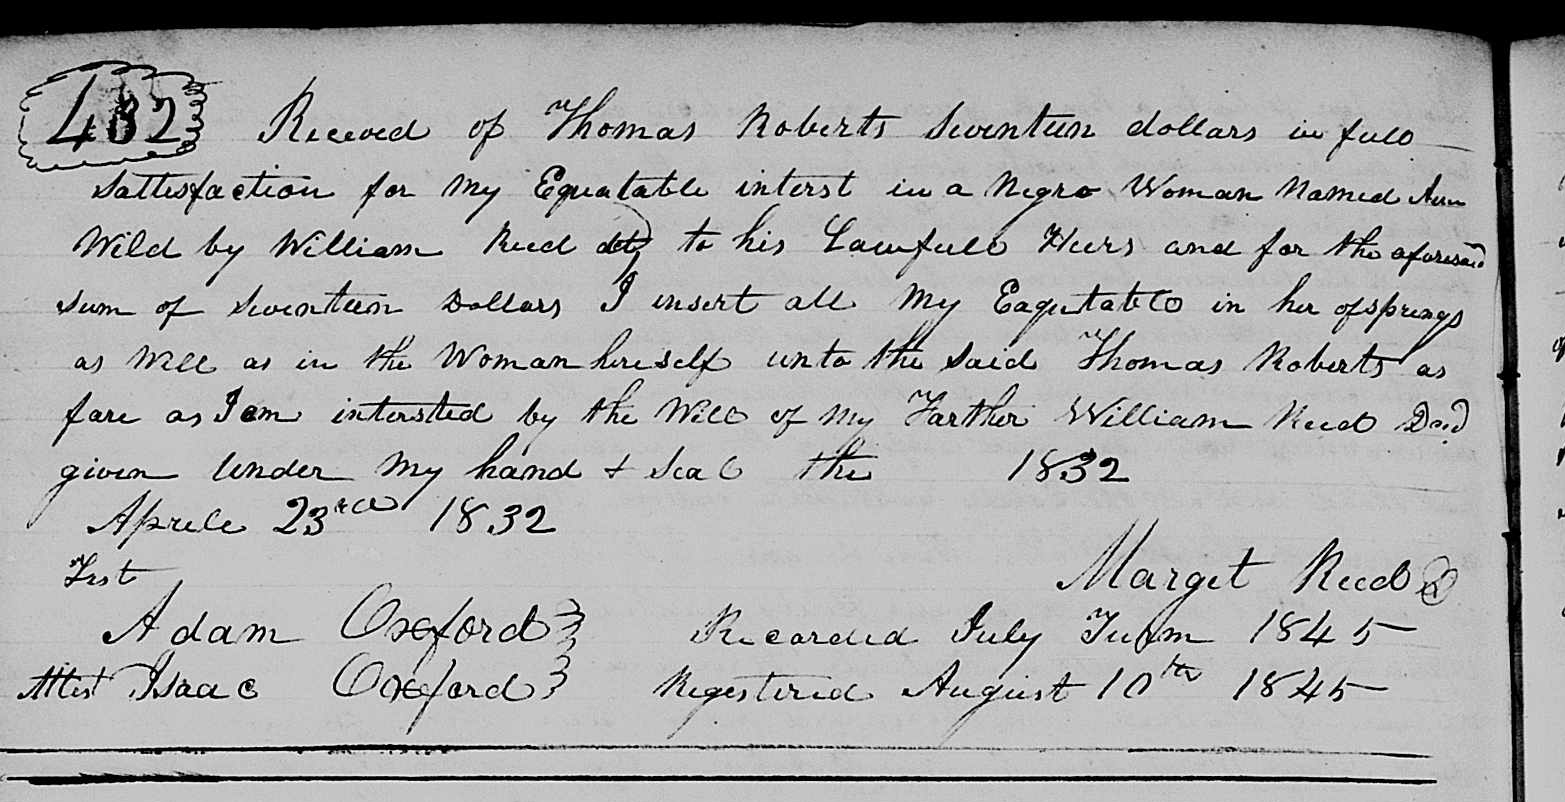 482 Receved of Thomas Roberts Seventeen dollars in full
Sattesfaction for My Equatable interst in a Negro Woman Named Ann
Wild by William Reed to his Lawfull Heirs and for the aforesaid
Sum of Seventeen Dollars I insert all My Eaqutable in her ofsprings
as Well as in the Woman herself unto the Said Thomas Roberts as
fare as I am intersted by the Will of My Farther William Reed Decd
given Under My hand & Seal the 1832
Aprele 23rd 1832
Test Marget Reed
Adam Oxford Recorded July Turm 1845
Attest Isaac Oxford Regestered August 10th 1845